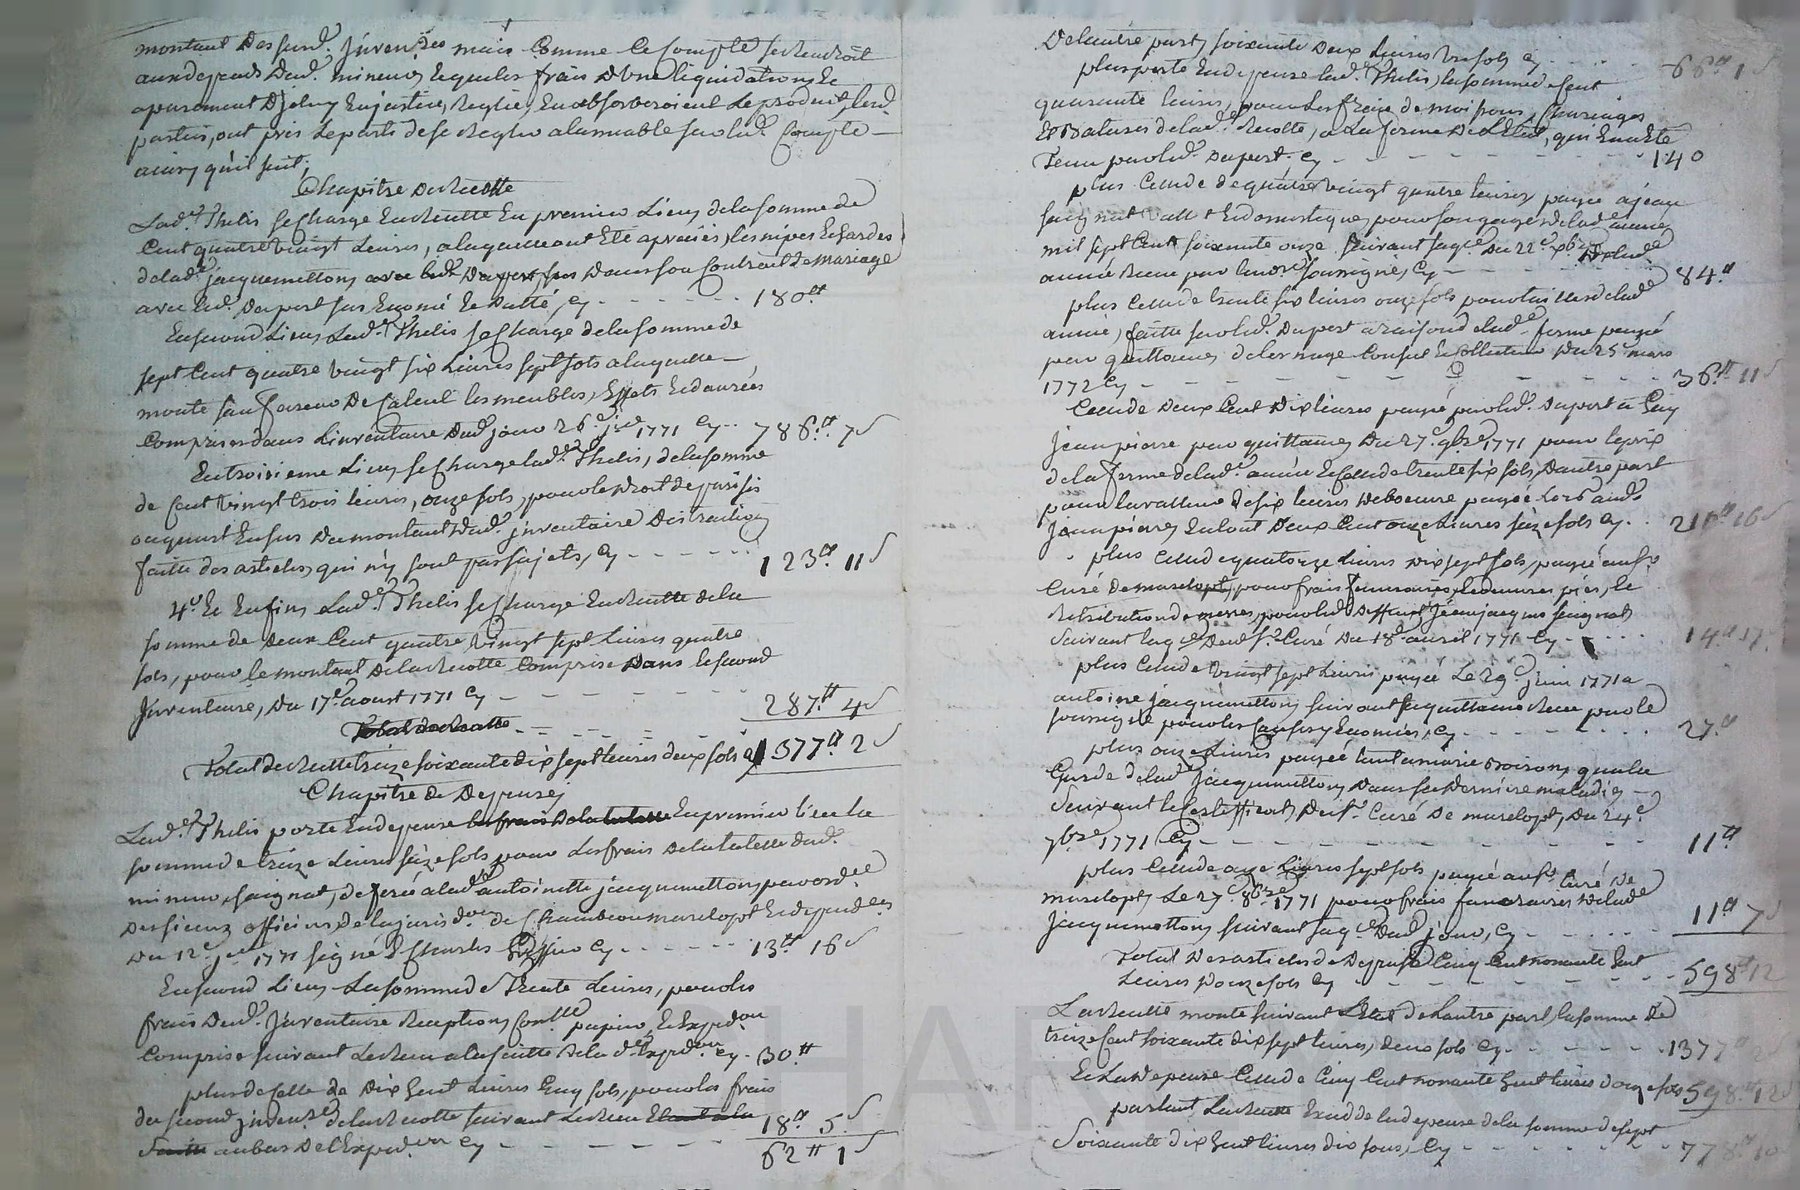 montant des susd. Jnventres mais Comme ce Compte se rendroit
aux depends desd. mineurs lequel les frais d'une liquidation Et
apurement dicelluy En justice, Reglée, En absorberoient le produit, lesd.
parties, ont pris le party de se Regler a lamiable sur led. Compte
ainsy qu'il suit,
Chapitre de Recette
Lad.e Thelis se Charge En Recette En premier Lieu de la somme de
Cent quatre vingt Livres, a laquelle ont Eté apreciés, les nipes Et hardes
de lad.e jacquemetton avec led. Dupert, sus Dans son Contrat de mariage
avec led. Dupert sus Enoncé Et datté, Cy - - - - - - 180.tt
En second Lieu, Lad.e Thelis se Charge de la somme de
sept Cent quatre vingt six Livres sept sols a laquelle
monte sauf Erreur De Calcul les meubles, Effets Et danrées
Compris dans L'inventaire Dud. jour 26.e j.er 1771 Cy - - 786.tt 7 s
En troisieme Lieu, se Charge lad.e Thelis, de la somme
de Cent vingt trois Livres, onze sols, pour le Droit de parisis
ou quart En sus Du montant Dud. jnventaire Distraction
faitte des articles, qui n'y sont pas sujets, Cy - - - - - - 123.tt 11 s
4.o Et Enfin, Lad.e Thelis se Charge En Recette de la
somme de Deux Cent quatre vingt sept Livres quatre
sols, pour le montant De la Recotte Comprise Dans le second
Jnventaire, Du 17.e aoust 1771 Cy - - - - - - 287.tt 4 s
Total de Recette - - - - -
Total de Recette treize soixante dix sept livres deux sols Cy 1377.tt 2 s
Chapitre de Depense
Lad.e Thelis porte En depense les frais De la tutelle En premier lieu la
somme de treize Livres seize sols pour Les frais De la tutelle dud.
mineur, saignat, deferée a lad.e antoinette jacquemetton, par ord.ce
Des sieurs officiers De la jurisd.on de Chambeon marclopt Et depend.ces
Du 12.e j.er 1771 signé Charles Cy - - - - - - 13.tt 16 s
En second Lieu La somme de Trente Livres, pour les
frais Dud. Jnventaire Reception, Contlle papier, Et Exped.on
Comprise suivant Le Recu a la suitte De lad.e Exped.on Cy - 30 tt
plus de Celle de Dix huit Livres Cinq sols, pour les frais
du second jnvent.re de la Recotte suivant Le Recu Etant a la 18.tt 5 s
Suitte au bas De l'Exped.on Cy - - - - - - 62 tt 1 s
De l'autre part, soixante Deux Livres un sols Cy - - - - 62.tt 1 s
plus porte En depense lad.e Thelis, la somme de Cent
quarante livres, pour Les frais de moissons, Charriages
Et Batures de lad.e Recotte, a La ferme De L'Etat, qui En a Eté
Tenu par led. Dupert. Cy - - - - - - 140
plus Celle de quatre vingt quatre livres payée a jean
saignat valet Et domestique, pour son gages de lad.e année
mil sept Cent soixante onze suivant sa q.ce Du 22.e xbre De lad.e
année Recue par Lund.e soussigné, Cy - - - - - - 84.tt
plus Celle de trente six livres onze sols pour tailles de lad.e
année, faitte sur led. Dupert a raison de lad.e ferme payée
par quittances de Consul Collecteur Du 25.e mars
1772 Cy - - - - - - 36.tt 11 s
Celle de Deux Cent Dix livres payée par led. Dupert a Guy
jean pierre par quittance Du 27.e 9bre 1771 pour le prix
de la ferme de lad.e année Et Celle de trente six sols, D'autre part
pour la valleur De six livres De beurre payée Led. aud.
Jean pierre, En tout Deux Cent onze Livres seize sols Cy - - 211.tt 16 s
plus Celle de quatorze Livres dix sept sols, payée au s.r
Curé De marclopt, pour frais funeraires, Retribution De messes, pour led. Deffunt Jean jacques saignat
Suivant la q.ce Dud. s.r Curé Du 18.e avril 1771 Cy - - - - 14.tt 17.
plus Celle de vingt sept Livres payée Le 29.e juin 1771 a
antoine jacquemetton, suivant sa quittance Recue par le
soussigné pour les Causes y Enoncées, Cy - - - - - - 27.tt
plus onze Livres payée tant a marie voison, qu'a la
Garde de lad.e jacquemetton, Dans sa Derniere maladie
Suivant le Certifficat Du s.r Curé De marclopt, Du 24.e
7bre 1771 Cy - - - - - - 11 tt
plus Celle de onze Livres sept sols payée au s.r Curé De
marclopt, Le 27.e 8bre 1771 pour frais funeraires De lad.e
Jacquemetton, suivant sa q.ce Dud. jour, Cy - - - - - - 11 tt 7 s
Total Des articles de Depense Cinq Cent nonante huit
Livres Douze sols Cy - - - - - - 598.tt 12
La Recette monte suivant L'Etat de L'autre part, la somme De
treize Cent soixante dix sept livres, deux sols Cy - - - - - - 1377 tt 2
Et La Depense Celle de Cinq Cent nonante huit livres douze sols 598.tt 12
partant La Recette Excede la depense de la somme de sept
Soixante dix huit livres dix sous, Cy - - - - - - 778.tt 10